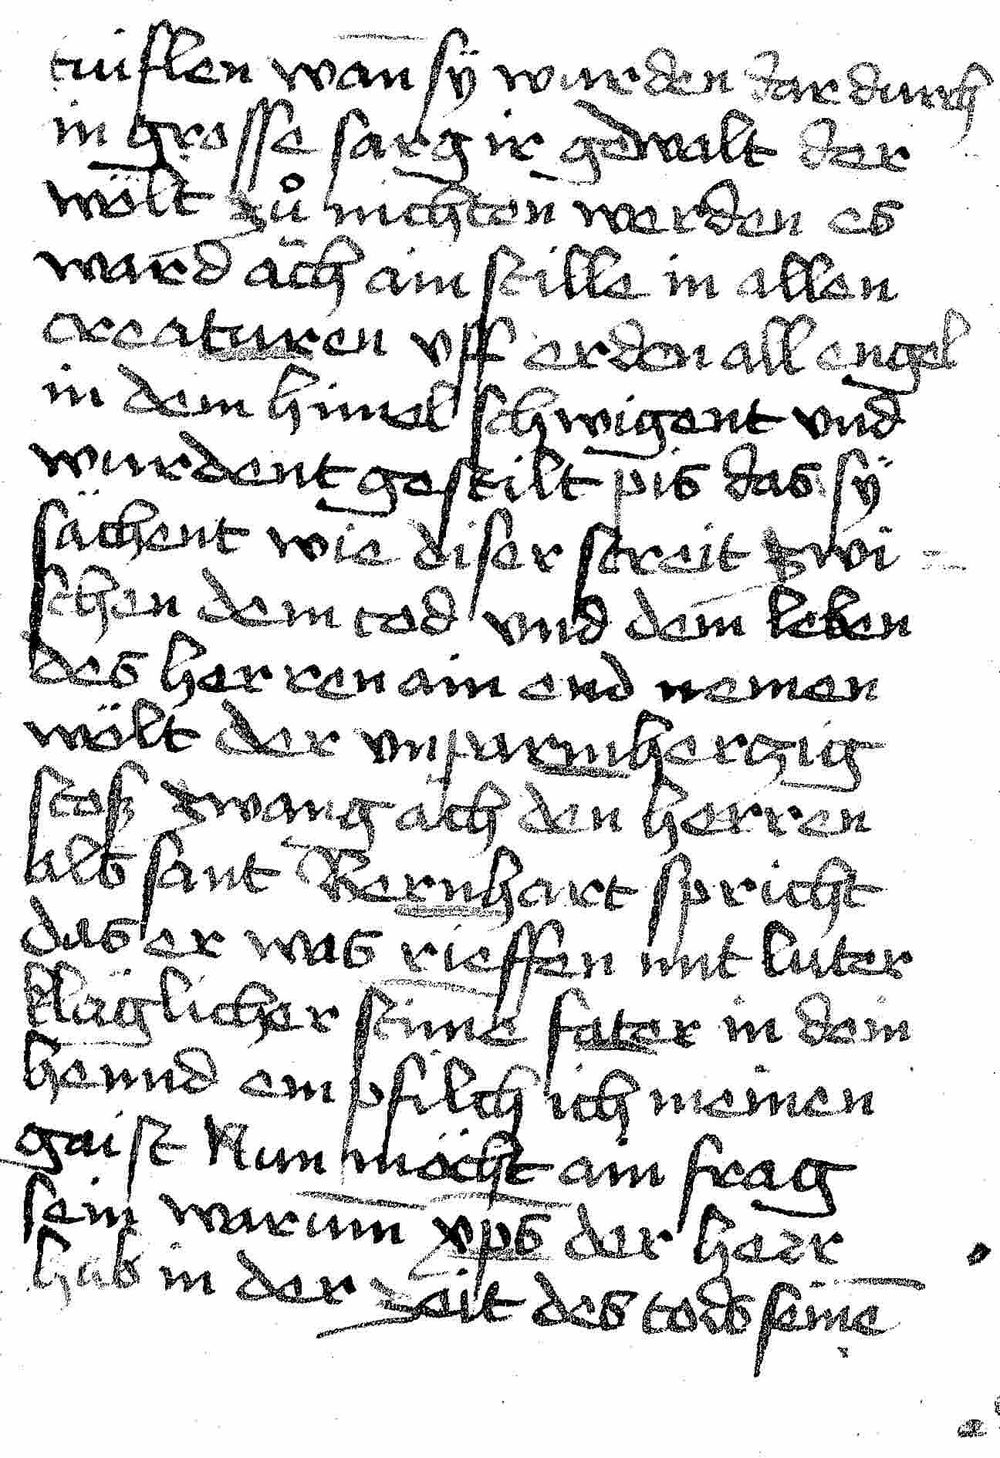 tüiflen wan sÿ wurden dar durch
in grosse sarg ir gewalt der
wölt zů nichten werden es
ward äch ain stille in allen
creaturen vff erden all engel
in dem himel schwigent vnd
wurdent gestilt pis das sÿ
sächent wie diser streit zwi=
schen dem tod vnd dem leben
des herren ain end nemen
wölt der vnparmherczig
stoß zwang ach den herren
als sant Bernhart spricht
das er was rieffen mit luter
kläglicher stime fater in dein
hennd empfilch ich meinen
gaist Nun möcht ain frag
sein warum xps der herr
hab in der zeit des tods seinē